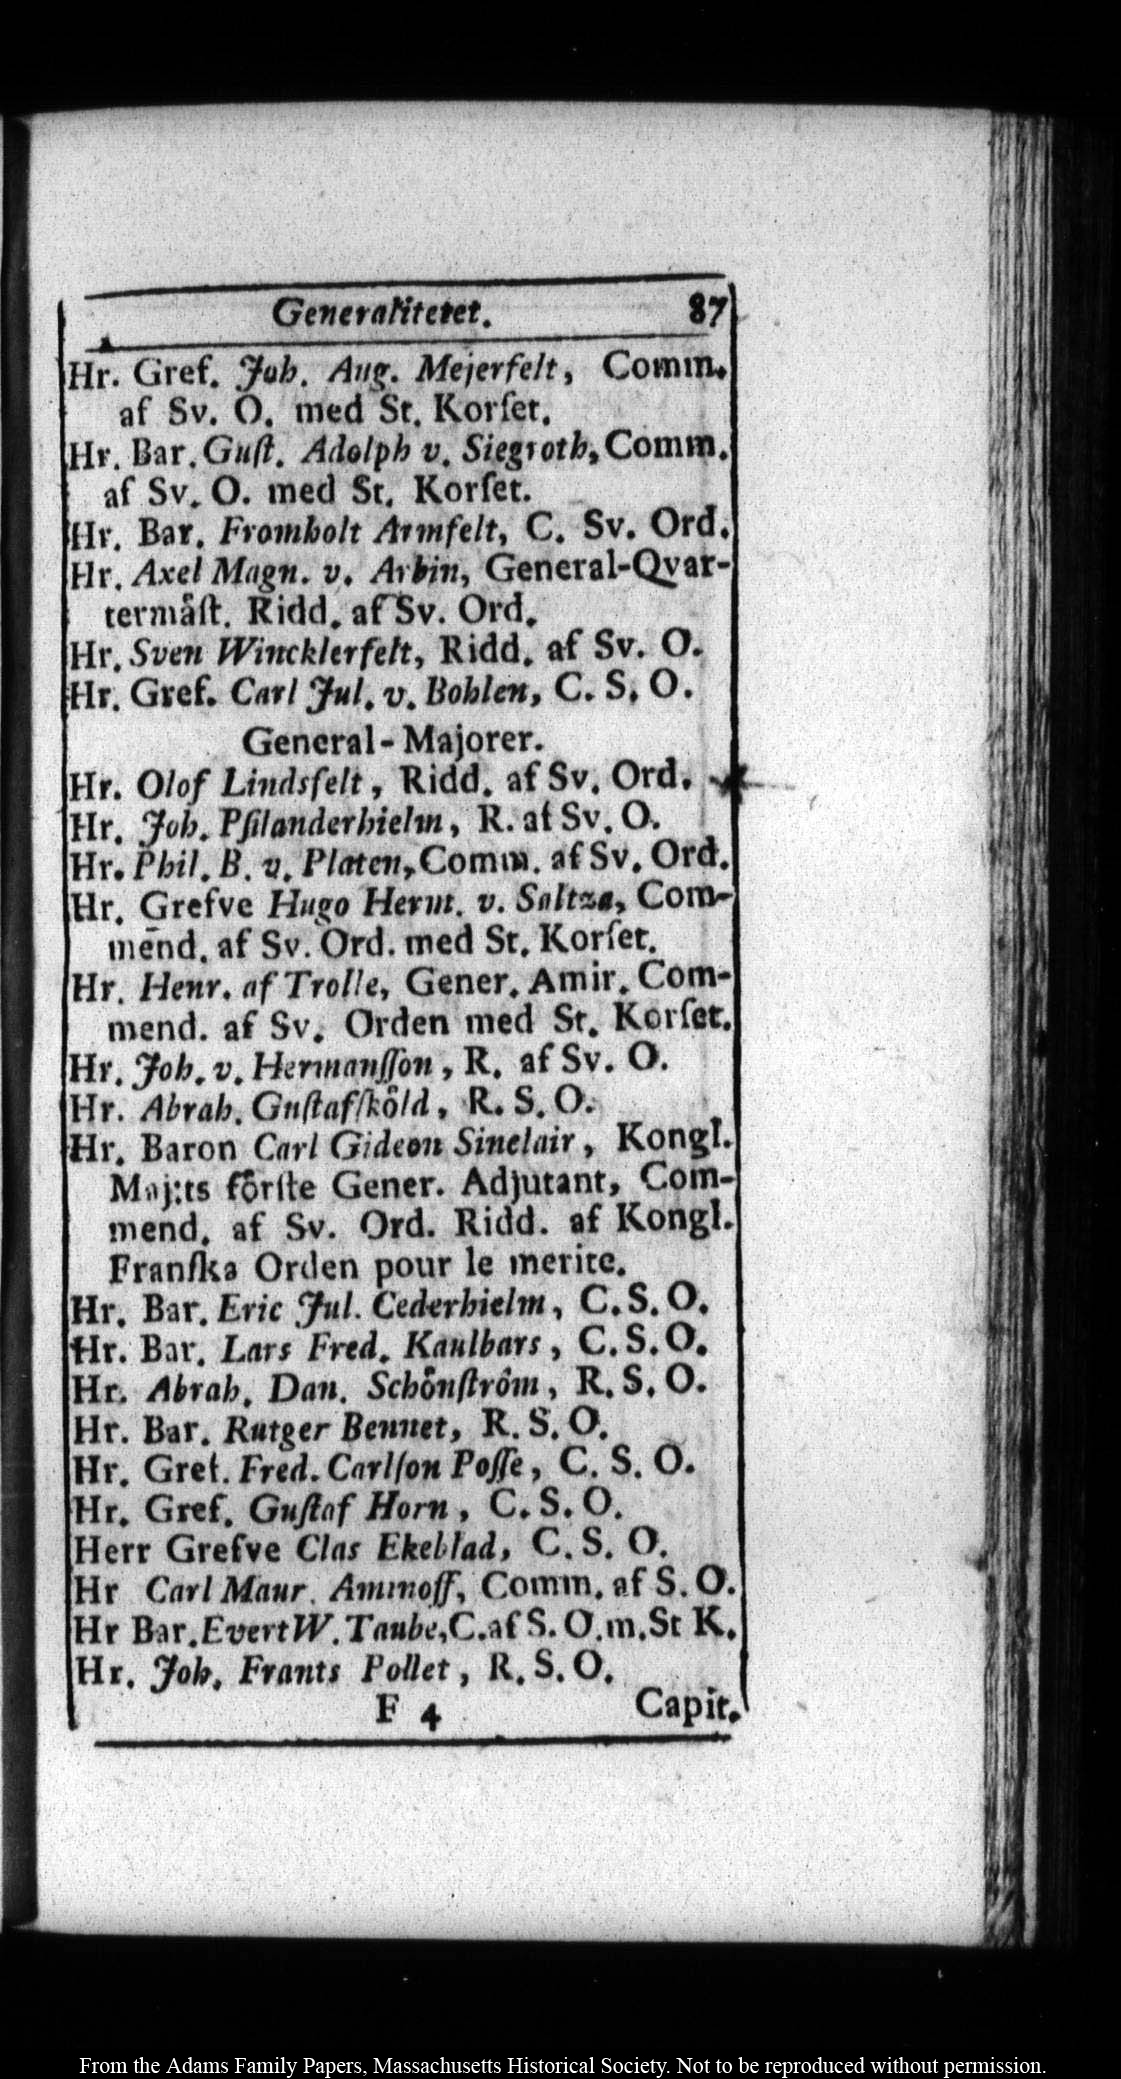 Generalitetet. 87
Hr. Gref. Joh. Aug. Mejerfelt, Comm.
af Sv. O. med St. Korſet.
Hr. Bar. Guſt. Adolph v. Siegroth, Comm.
af Sv. O. med St. Korſet.
Hr. Bar. Fromholt Armfelt, C. Sv. Ord.
Hr. Axel Magn. v. Arbin, General-Qvar-
termåſt. Ridd. af Sv. Ord.
Hr. Sven Wincklerfelt, Ridd. af Sv. O.
Hr. Gref. Carl Jul. v. Bohlen, C. S. O.
General-Majorer.
Hr. Olof Lindsfelt, Ridd. af Sv. Ord.
Hr. Joh. Pſilanderhielm, R. af Sv. O.
Hr. Phil. B. v. Platen, Comm. af Sv. Ord.
Hr. Grefve Hugo Herm. v. Saltza, Com-
mend. af Sv. Ord. med St. Korſet.
Hr. Henr. af Trolle, Gener. Amir. Com-
mend. af Sv. Orden med St. Korſet.
Hr. Joh. v. Hermanſſon, R. af Sv. O.
Hr. Abrah. Guſtafſkôld, R. S. O.
Hr. Baron Carl Gideon Sinclair, Kongl.
Maj:ts fôrſte Gener. Adjutant, Com-
mend. af Sv. Ord. Ridd. af Kongl.
Franſka Orden pour le merite.
Hr. Bar. Eric Jul. Cederhielm, C. S. O.
Hr. Bar. Lars Fred. Kaulbars, C. S. O.
Hr. Abrah. Dan. Schônſtrôm, R. S. O.
Hr. Bar. Rutger Bennet, R. S. O.
Hr. Gref. Fred. Carlſon Poſſe, C. S. O.
Hr. Gref. Guſtaf Horn, C. S. O.
Herr Grefve Clas Ekeblad, C. S. O.
Hr Carl Maur. Aminoff, Comm. af S. O.
Hr Bar. Evert W. Taube, C. af S. O. m. St K.
Hr. Joh. Frants Pollet, R. S. O.
F 4 Capit.
From the Adams Family Papers, Massachusetts Historical Society. Not to be reproduced without permission.